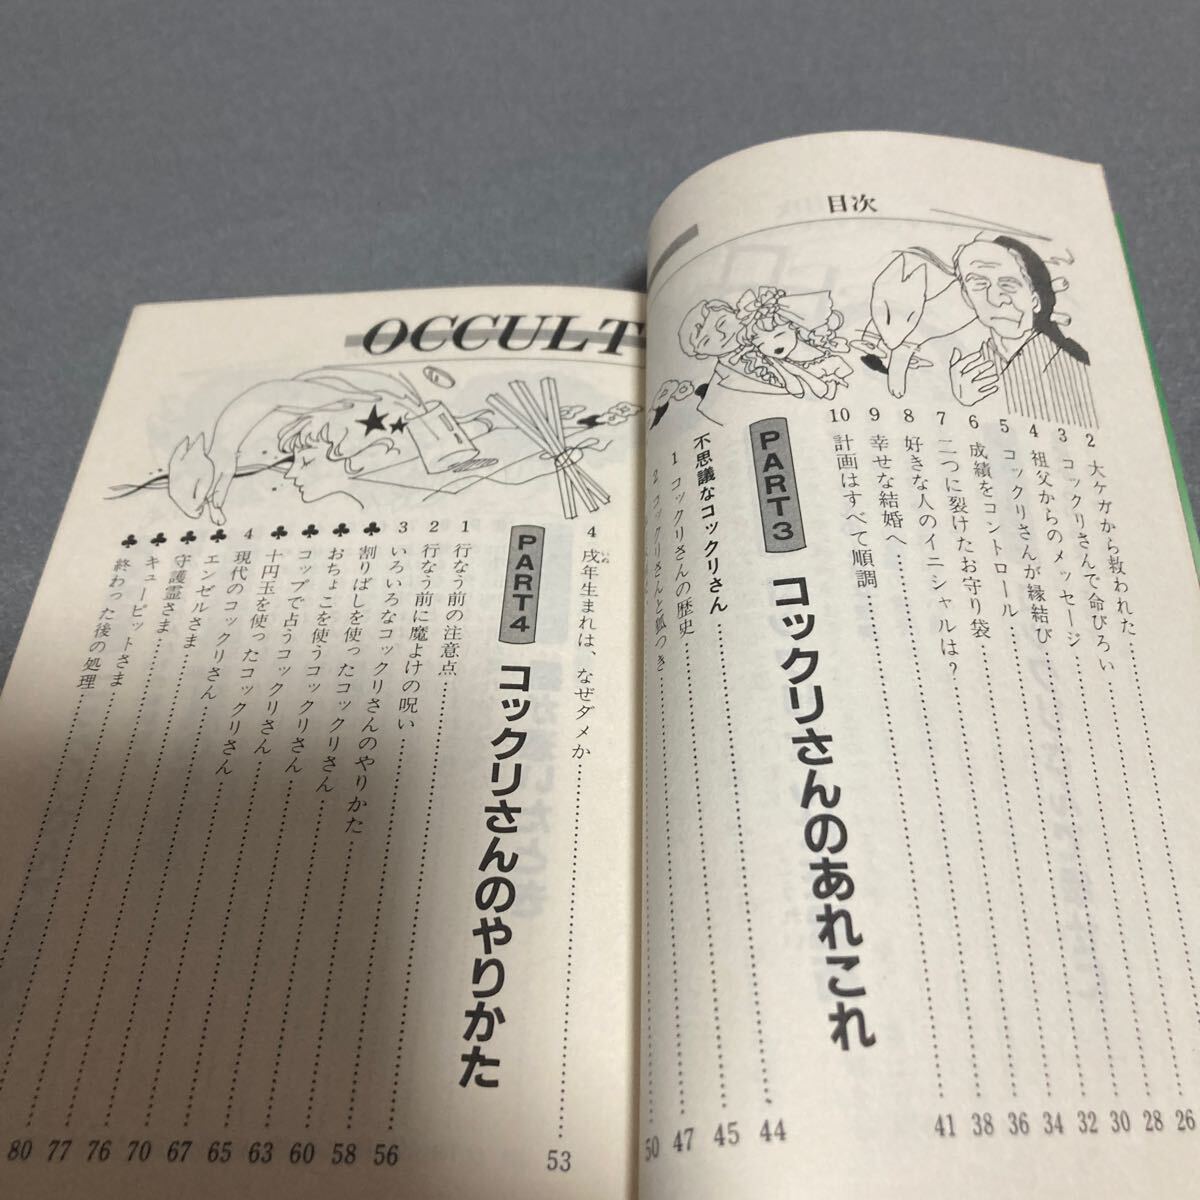 目次
2 大ケガから救われた
3 コックリさんで命びろい 26
4 祖父からのメッセージ 28
5 コックリさんが縁結び 30
6 成績をコントロール 32
7 二つに裂けたお守り袋 34
8 好きな人のイニシャルは? 36
9 幸せな結婚へ 38
10 計画はすべて順調 41
PART3 コックリさんのあれこれ
不思議なコックリさん 44
1 コックリさんの歴史 45
2 コックリさんと狐つき 47
50
OCCULT
4 戌年生まれは、なぜダメか 53
いぬ
PART4 コックリさんのやりかた
1 行なう前の注意点 56
2 行なう前に魔よけの呪い 58
3 いろいろなコックリさんのやりかた 60
♣ 割りばしを使ったコックリさん 63
♣ おちょこを使うコックリさん 65
♣ コップで占うコックリさん 67
♣ 十円玉を使ったコックリさん 70
4 現代のコックリさん 76
♣ エンゼルさま 77
♣ 守護霊さま 80
♣ キューピットさま
♣ 終わった後の処理